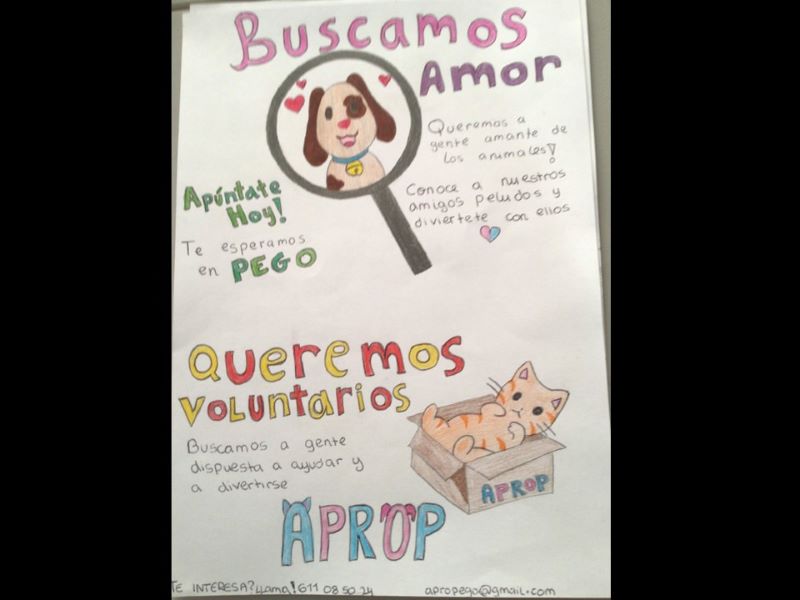 Buscamos
Amor
Queremos a
gente amante de
los animales!
Conoce a nuestros
amigos peludos y
diviertete con ellos
Apúntate
Hoy!
Te esperamos
en PEGO
Queremos
Voluntarios
Buscamos a gente
dispuesta a ayudar y
a divertirse
APROP
APROP
TE INTERESA? LLama! 611 08 50 24
apropego@gmail.com